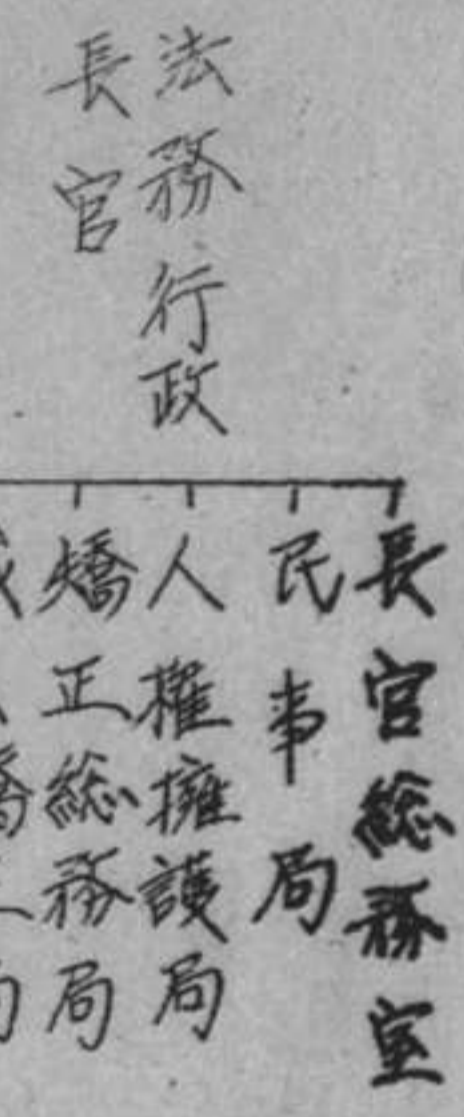 法務行政
長官
長官総務室
民事局
人権擁護局
矯正総務局